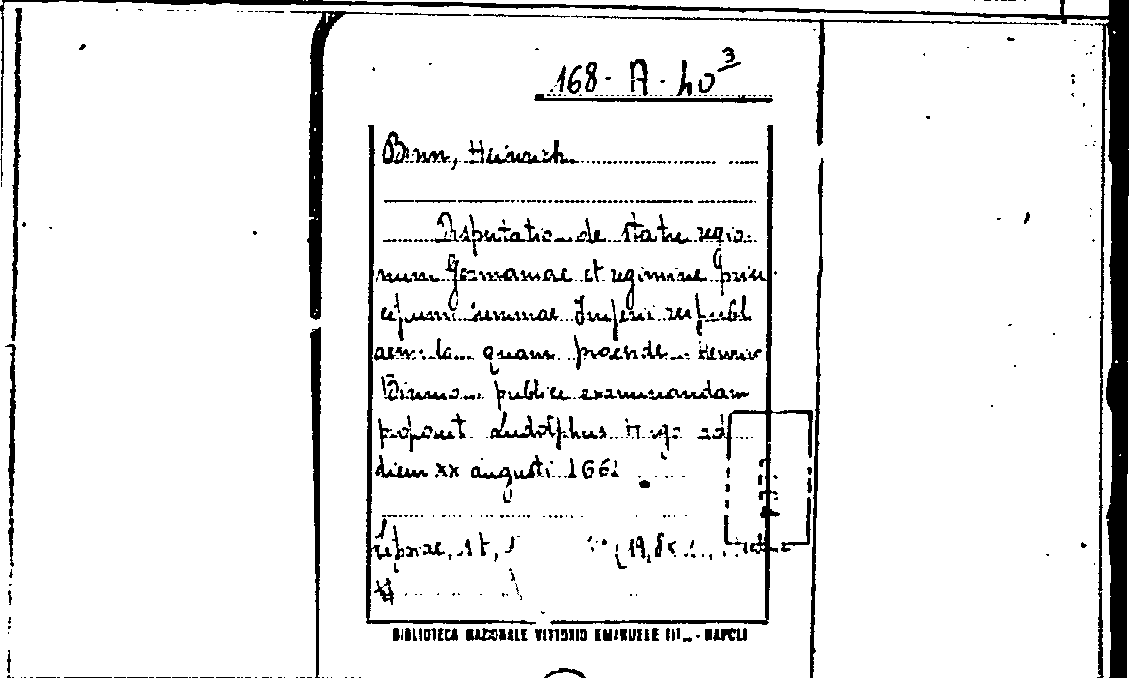 168 - A - 40³
Binn, Heinrich
Disputatio de statu regio-
num Germaniae et regimine prin
cipum summae Imperii reipubl
aemula quam praeside Henrico
Binnio publice examinandam
proponit Ludolphus Hugo ad
diem xx augusti 1661
19,8
BIBLIOTECA NAZIONALE VITTORIO EMANUELE III - NAPOLI